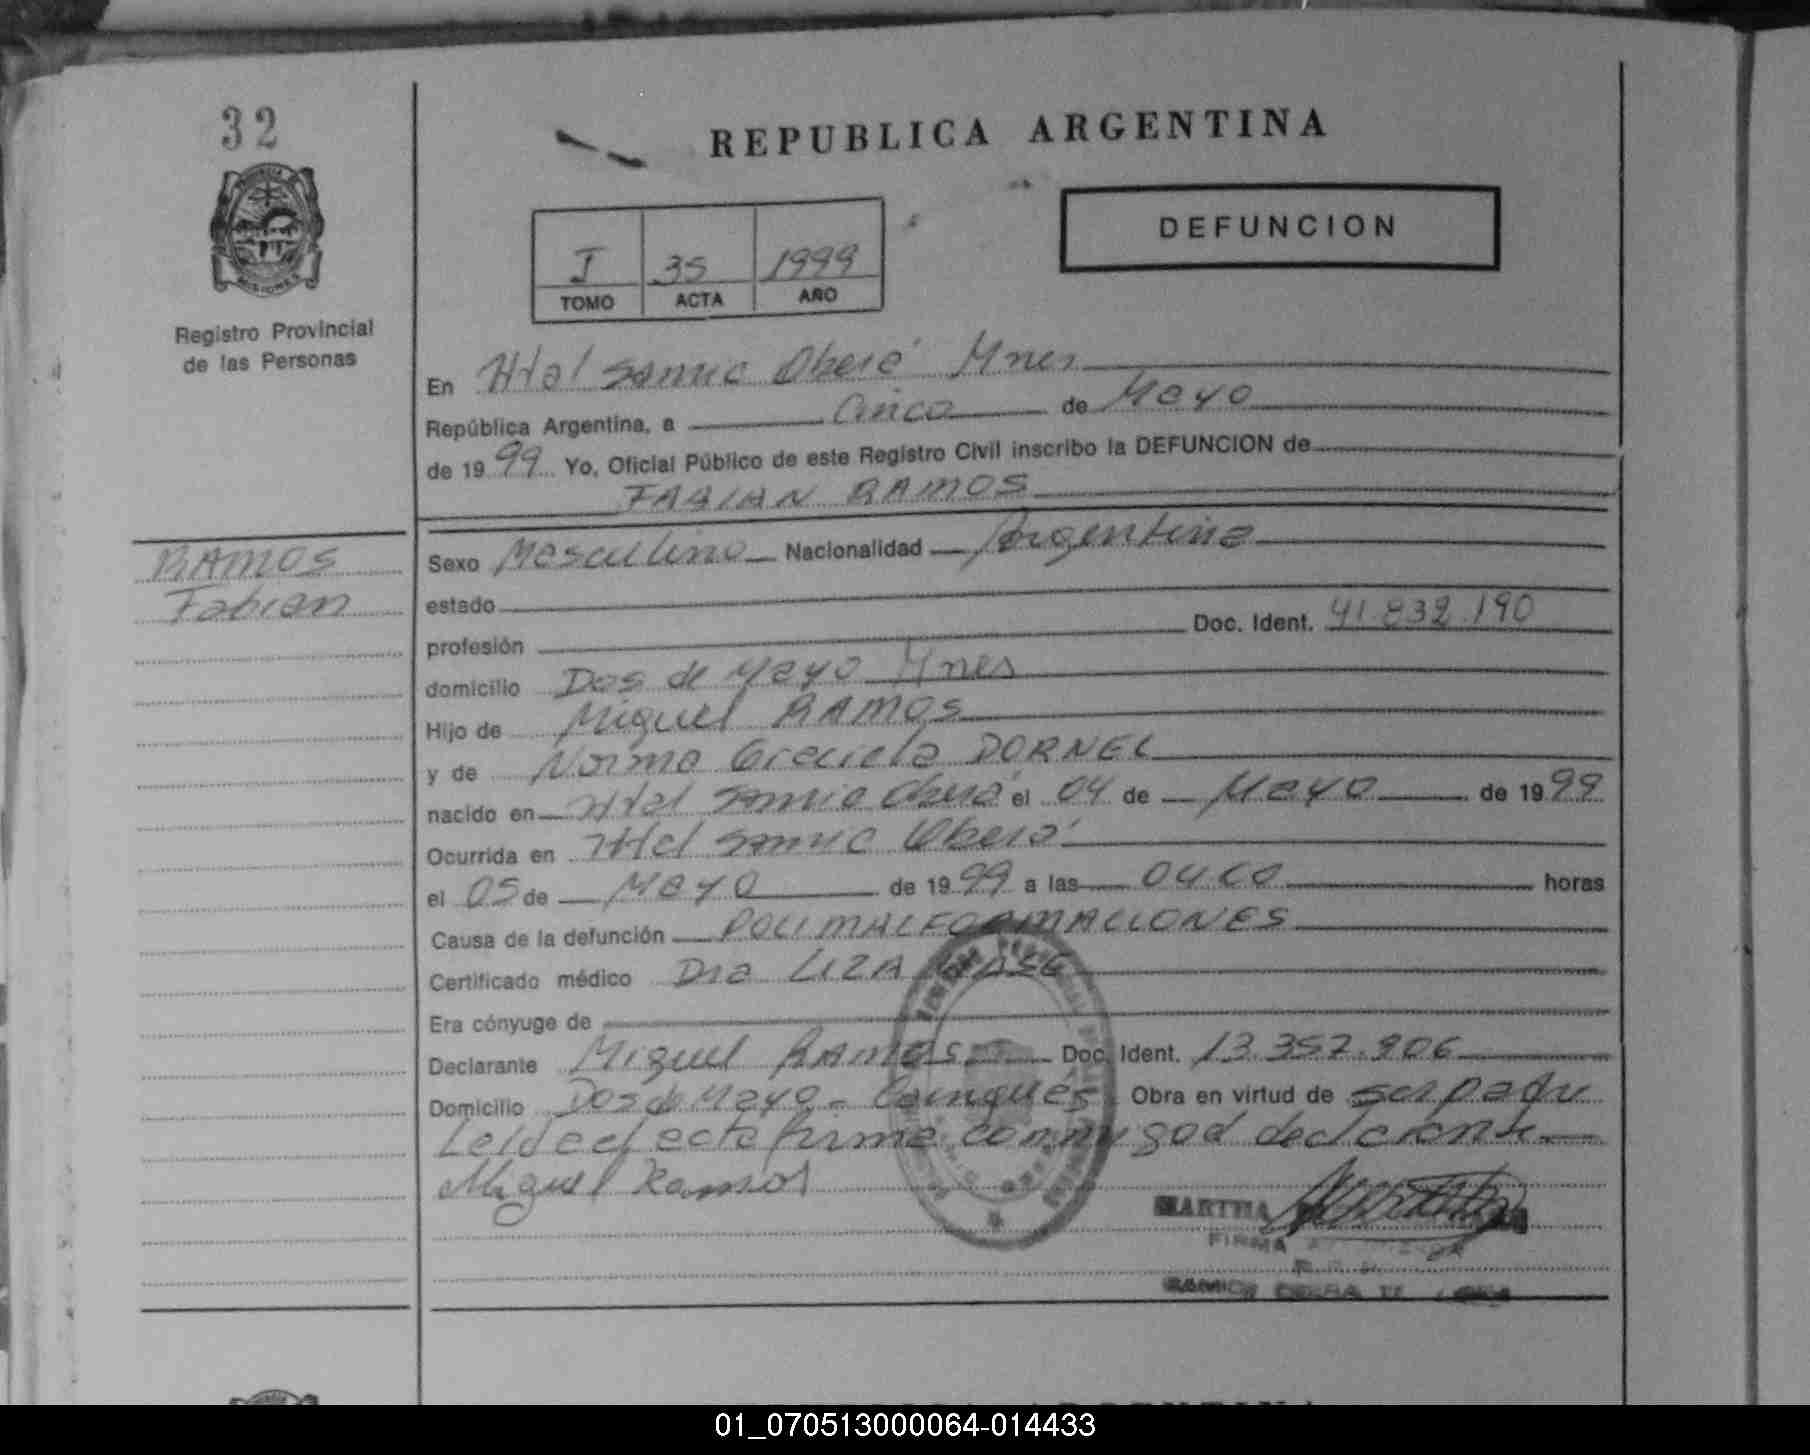 32
REPUBLICA ARGENTINA
DEFUNCION
I 35 1999
TOMO ACTA AÑO
Registro Provincial
de las Personas
En Htal Samic Oberá Mnes
República Argentina, a Cinco de Mayo
de 1999 Yo, Oficial Público de este Registro Civil inscribo la DEFUNCION de
FABIAN RAMOS
RAMOS
Fabian
Sexo Masculino Nacionalidad Argentina
estado
profesión Doc. Ident. 41.832.190
domicilio Dos de Mayo Mnes
Hijo de Miguel RAMOS
y de Norma Graciela DORNEL
nacido en Htal Samic Oberá el 04 de Mayo de 1999
Ocurrida en Htal Samic Oberá
el 05 de Mayo de 1999 a las 04 00 horas
Causa de la defunción POLIMALFORMACIONES
Certificado médico Dra LIZA
Era cónyuge de
Declarante Miguel RAMOS Doc. Ident. 13.357.906
Domicilio Dos de Mayo - Cainguás Obra en virtud de ser padre
Leída el acta firma conmigo el declarante
Miguel Ramos
MARTHA
FIRMA
01_070513000064-014433